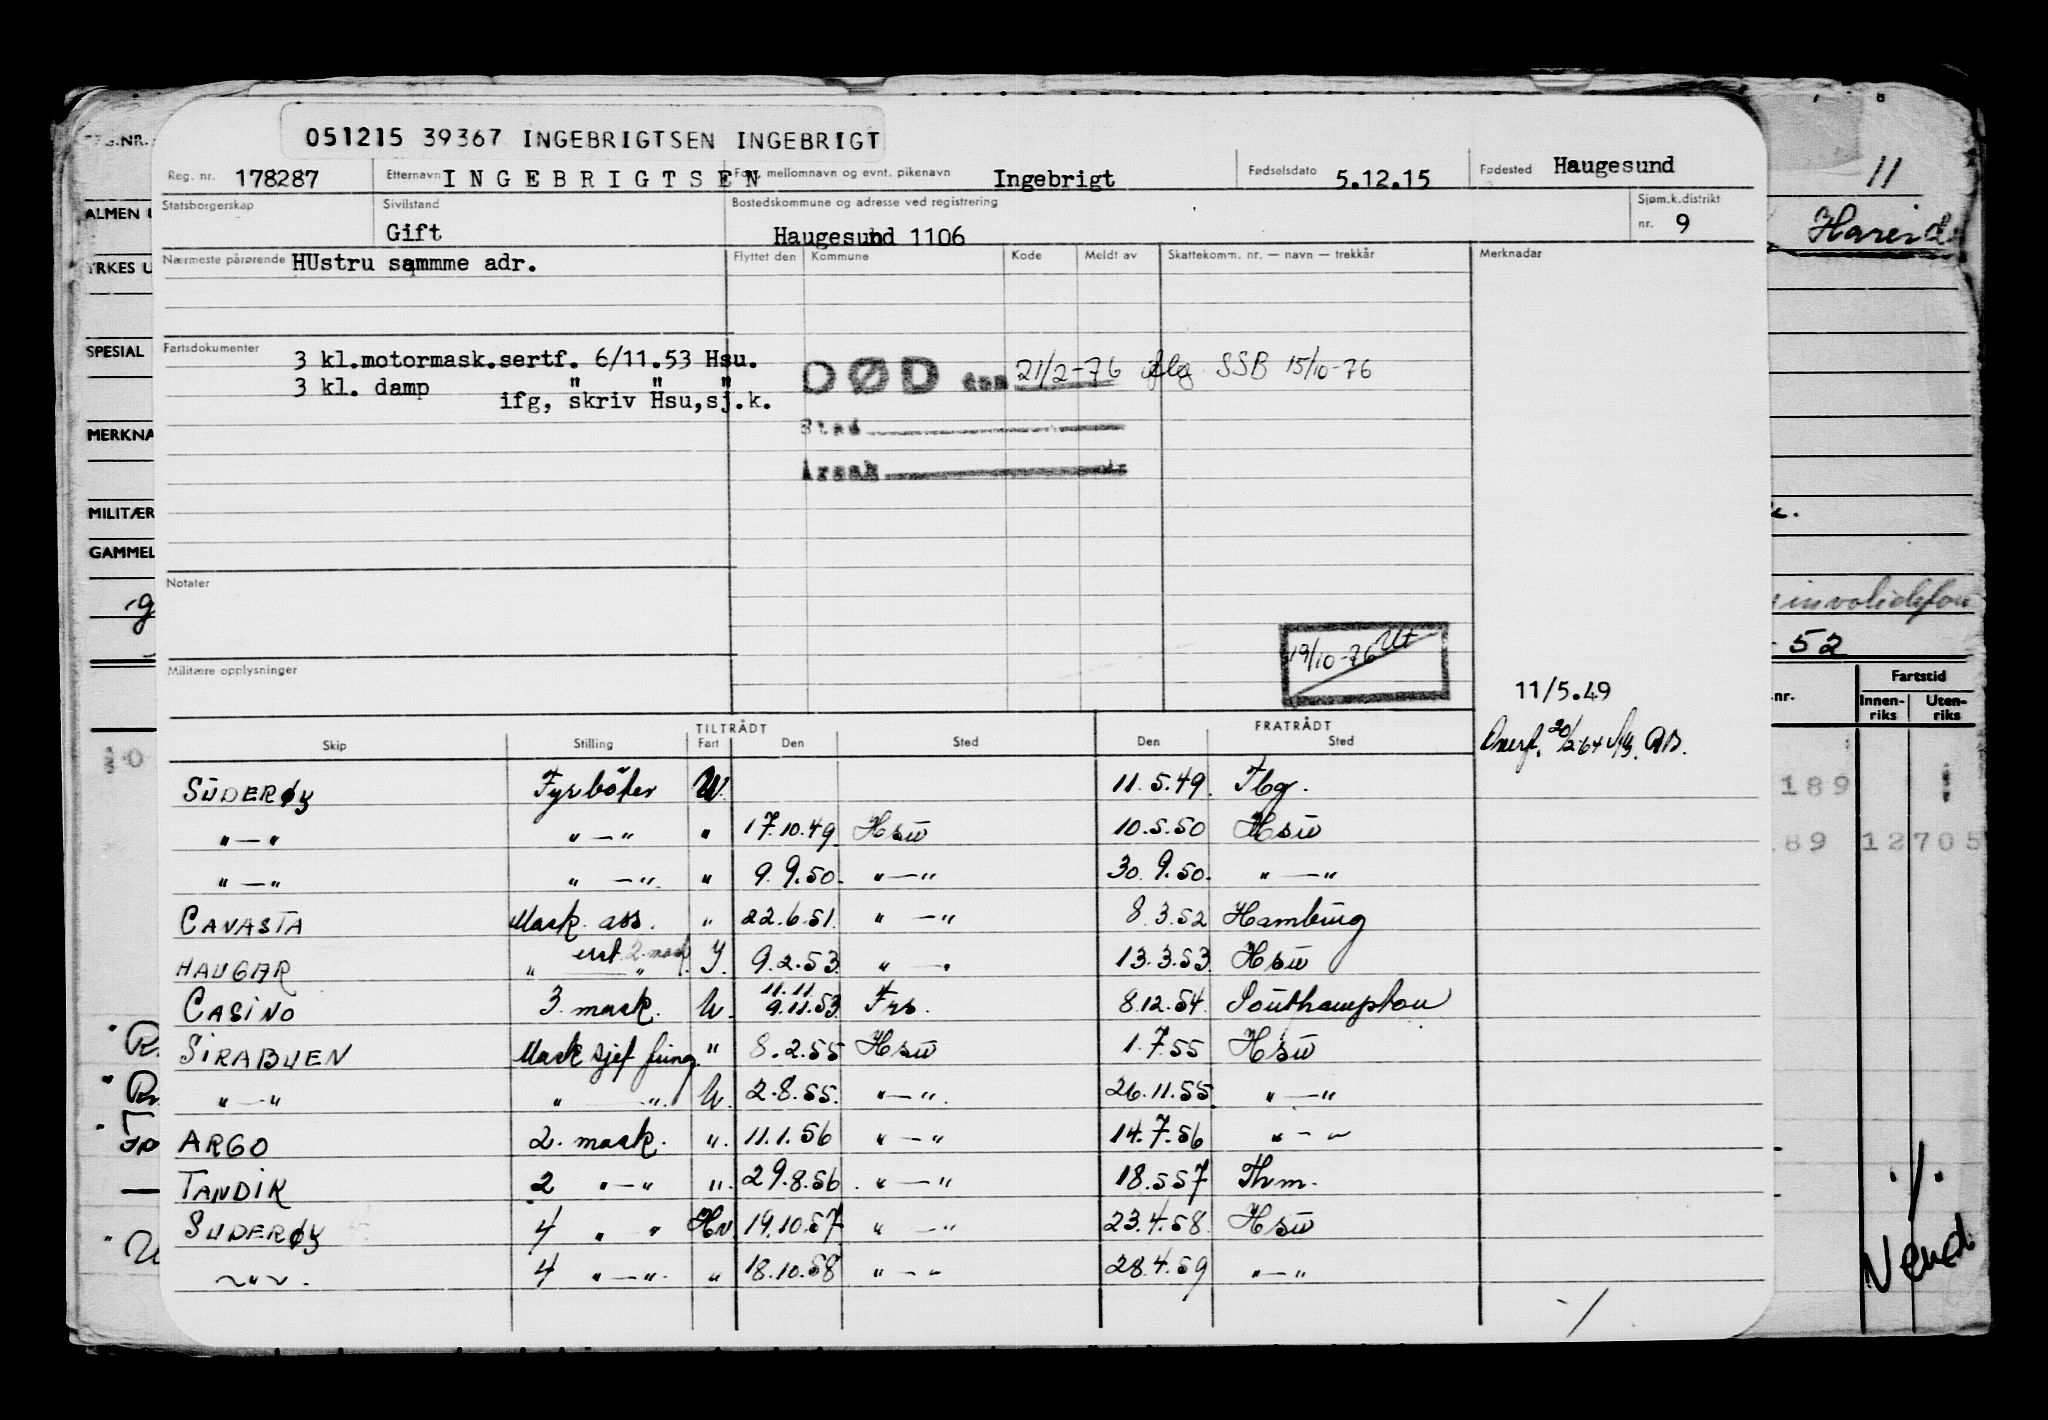 051215 39367 INGEBRIGTSEN INGEBRIGT
Reg. nr. 178287 Etternavn INGEBRIGTSEN For-, mellomnavn og evnt. pikenavn Ingebrigt Fødselsdato 5.12.15 Fødested Haugesund
Statsborgerskap Sivilstand Gift Bostedskommune og adresse ved registrering Haugesund 1106 Sjøm.k.distrikt nr. 9
Nærmeste pårørende HUstru sammme adr. Flyttet den Kommune Kode Meldt av Skattekomm. nr. — navn — trekkår Merknadar
Fartsdokumenter 3 kl.motormask.sertf. 6/11.53 Hsu.
3 kl. damp " " "
ifg, skriv Hsu,sj.k.
DØD den 21/2-76 iflg SSB 15/10-76
Sted
Årsak
Notater
19/10-76 Ut
Militære opplysninger
11/5.49
20/2-64
TILTRÅDT FRATRÅDT
Skip Stilling Fart Den Sted Den Sted
SÜDERØY Fyrbøter U. 11.5.49. Fbg.
"—" "—" " 17.10.49 Hsu 10.5.50 Hsu
"—" "—" " 9.9.50. "—" 30.9.50. "—"
CANASTA Mask. ass. " 22.6.51. "—" 8.3.52 Hamburg
HAUGAR " erst. 2. mask " I. 9.2.53 "—" 13.3.53 Hsu
CASINO 3. mask. U. 11.11 9.11.53 Frs. 8.12.54. Southampton
SIRABUEN Mask sjef fung. " 8.2.55 Hsu 1.7.55 Hsu
"—" "—" U. 2.8.55. "—" 26.11.55. "—"
ARGO 2. mask. " 11.1.56 "—" 14.7.56 "—"
TANDIK 2 "—" " 29.8.56. "—" 18.5.57 Thm.
SUDERØY 4 " " Hv. 19.10.57. "—" 23.4.58. Hsu
~"~. 4 "—" " 18.10.58 "—" 28.4.59 "—"
ALMEN
SPESIAL
MERKNA
MILITÆR
GAMMEL
11
52
nr. Fartstid
Innen-riks Uten-riks
189
89 12705
Vend